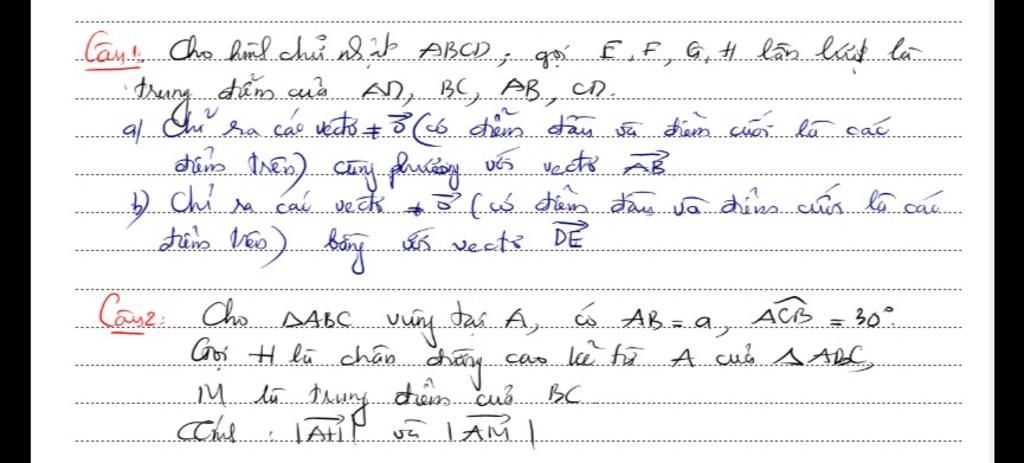 Câu 1: Cho hình chữ nhật ABCD, gọi E, F, G, H lần lượt là
trung điểm của AD, BC, AB, CD.
a) Chỉ ra các vectơ ≠ 0⃗ (có điểm đầu và điểm cuối là các
điểm trên) cùng phương với vectơ A͞B⃗
b) Chỉ ra các vectơ ≠ 0⃗ (có điểm đầu và điểm cuối là các
điểm trên) bằng với vectơ D͞E⃗
Câu 2: Cho ΔABC vuông tại A, có AB = a, ÂCB = 30°.
Gọi H là chân đường cao kẻ từ A của ΔABC,
M là trung điểm của BC
Tính : |A͞H⃗| và |A͞M⃗|